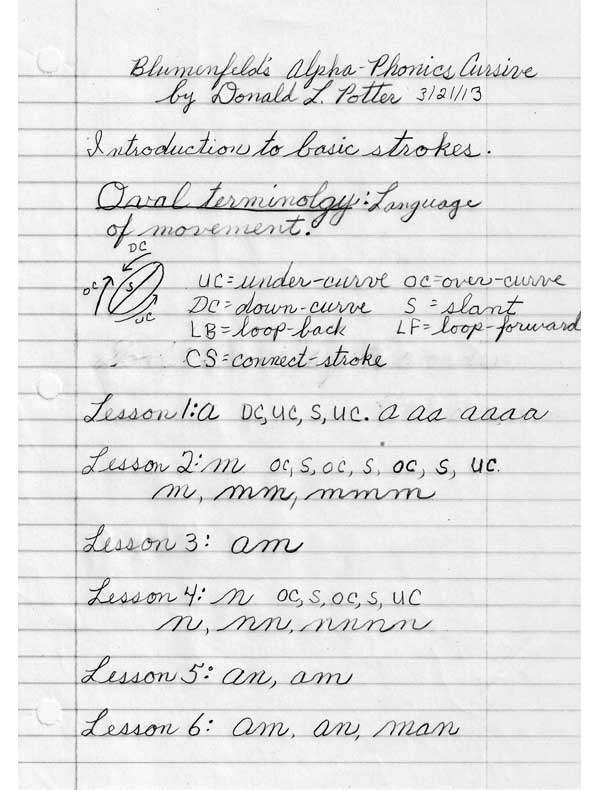 Blumenfeld's Alpha-Phonics Cursive
by Donald L. Potter 3/21/13
Introduction to basic strokes.
Oval terminolgy: Language
of movement.
DC
OC S UC
UC = under-curve OC = over-curve
DC = down-curve S = slant
LB = loop-back LF = loop-forward
CS = connect-stroke
Lesson 1: a DC, UC, S, UC. a aa aaaa
Lesson 2: m OC, S, OC, S, OC, S, UC.
m, mm, mmm
Lesson 3: am
Lesson 4: n OC, S, OC, S, UC
n, nn, nnnn
Lesson 5: an, am
Lesson 6: am, an, man